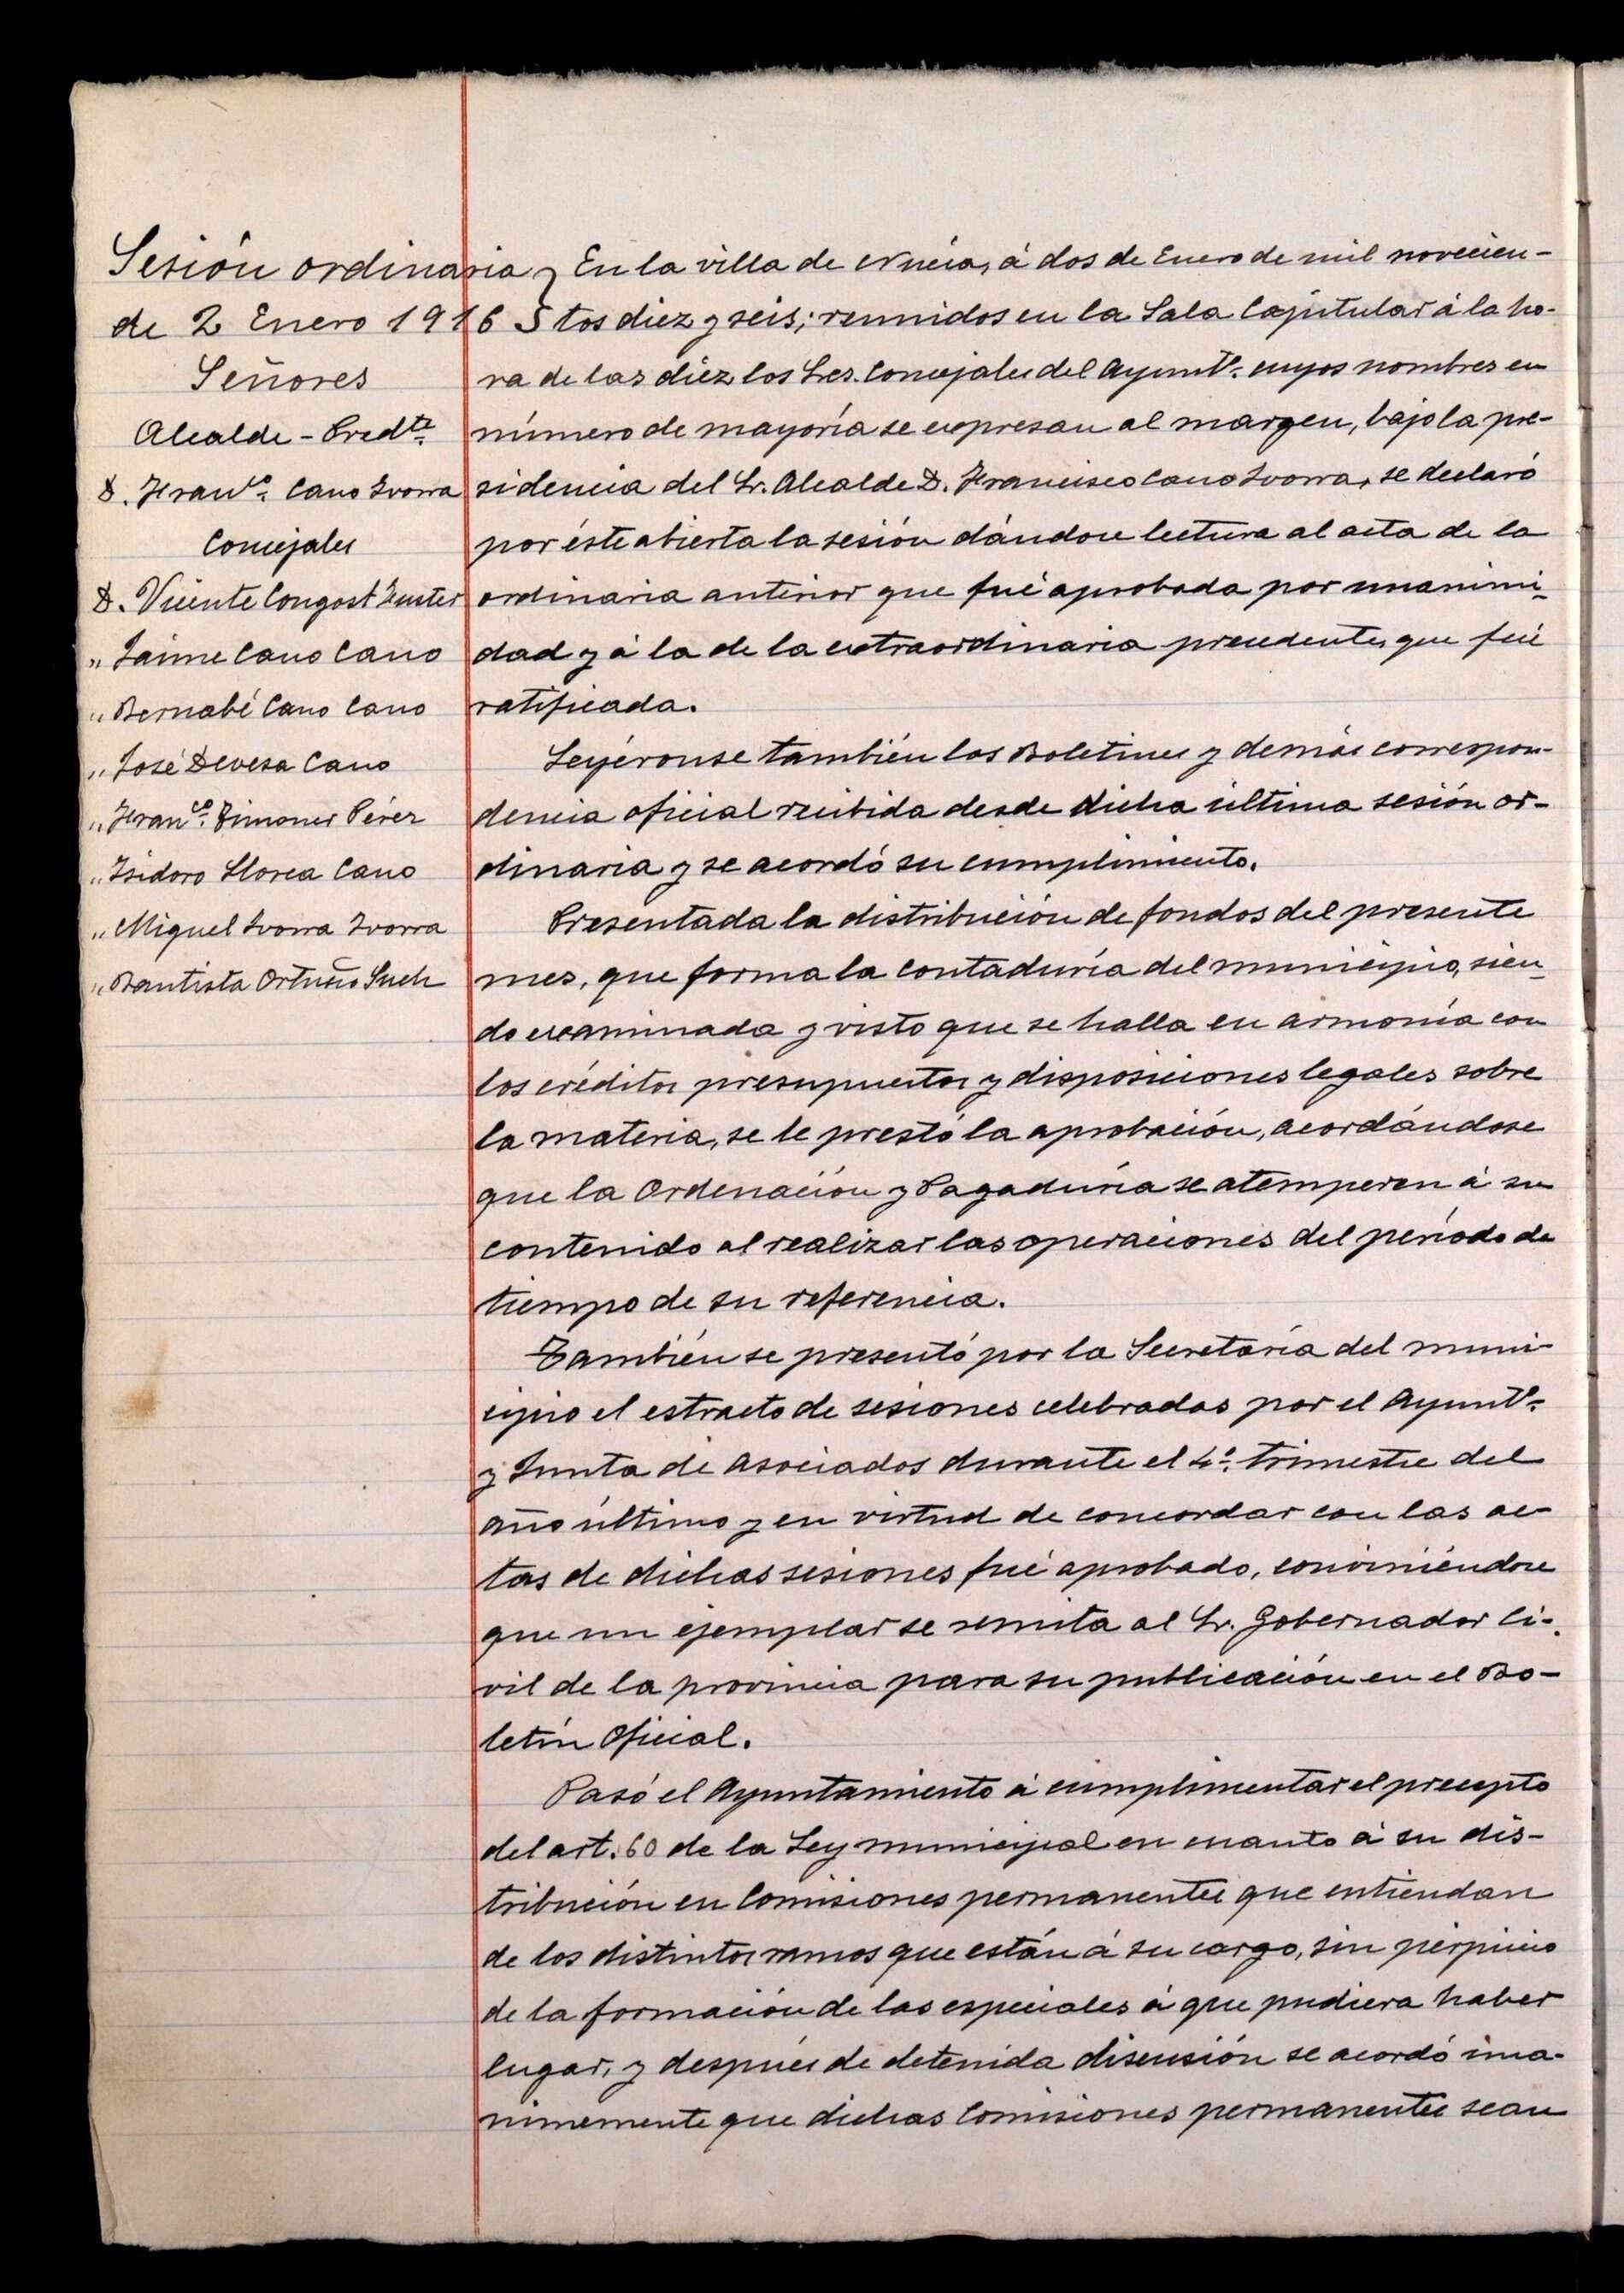 Sesión ordinaria
de 2 Enero 1916
Señores
Alcalde - Presdte
D. Franco. Cano Ivorra
Concejales
D. Vicente Congost Fuster
" Jaime Cano Cano
" Bernabé Cano Cano
" José Devesa Cano
" Franco. Timoner Pérez
" Isidoro Llorca Cano
" Miguel Ivorra Ivorra
" Bautista Ortuño Such
En la villa de Nucía, á dos de Enero de mil novecien-
tos diez y seis; reunidos en la Sala Capitular á la ho-
ra de las diez los Sres. Concejales del Ayuntº. cuyos nombres en
número de mayoría se expresan al margen, bajo la pre-
sidencia del Sr. Alcalde D. Francisco Cano Ivorra, se declaró
por éste abierta la sesión dándose lectura al acta de la
ordinaria anterior que fué aprobada por unanimi-
dad y á la de la extraordinaria precedente, que fué
ratificada.
Leyéronse también los Boletines y demás correspon-
dencia oficial recibida desde dicha última sesión or-
dinaria y se acordó su cumplimiento.
Presentada la distribución de fondos del presente
mes, que forma la contaduría del municipio, sien-
do examinada y visto que se halla en armonía con
los créditos presupuestos y disposiciones legales sobre
la materia, se le prestó la aprobación, acordándose
que la Ordenación y Pagaduría se atemperen á su
contenido al realizar las operaciones del período de
tiempo de su referencia.
También se presentó por la Secretaría del muni-
cipio el estracto de sesiones celebradas por el Ayuntº.
y Junta de Asociados durante el 4º. trimestre del
año último y en virtud de concordar con las ac-
tas de dichas sesiones fué aprobado, conviniéndose
que un ejemplar se remita al Sr. Gobernador Ci-
vil de la provincia para su publicación en el Bo-
letín Oficial.
Pasó el Ayuntamiento á cumplimentar el precepto
del art. 60 de la Ley municipal en cuanto á su dis-
tribución en Comisiones permanentes que entiendan
de los distintos ramos que están á su cargo, sin perjuicio
de la formación de las especiales á que pudiera haber
lugar, y después de detenida discusión se acordó una-
nimemente que dichas Comisiones permanentes sean